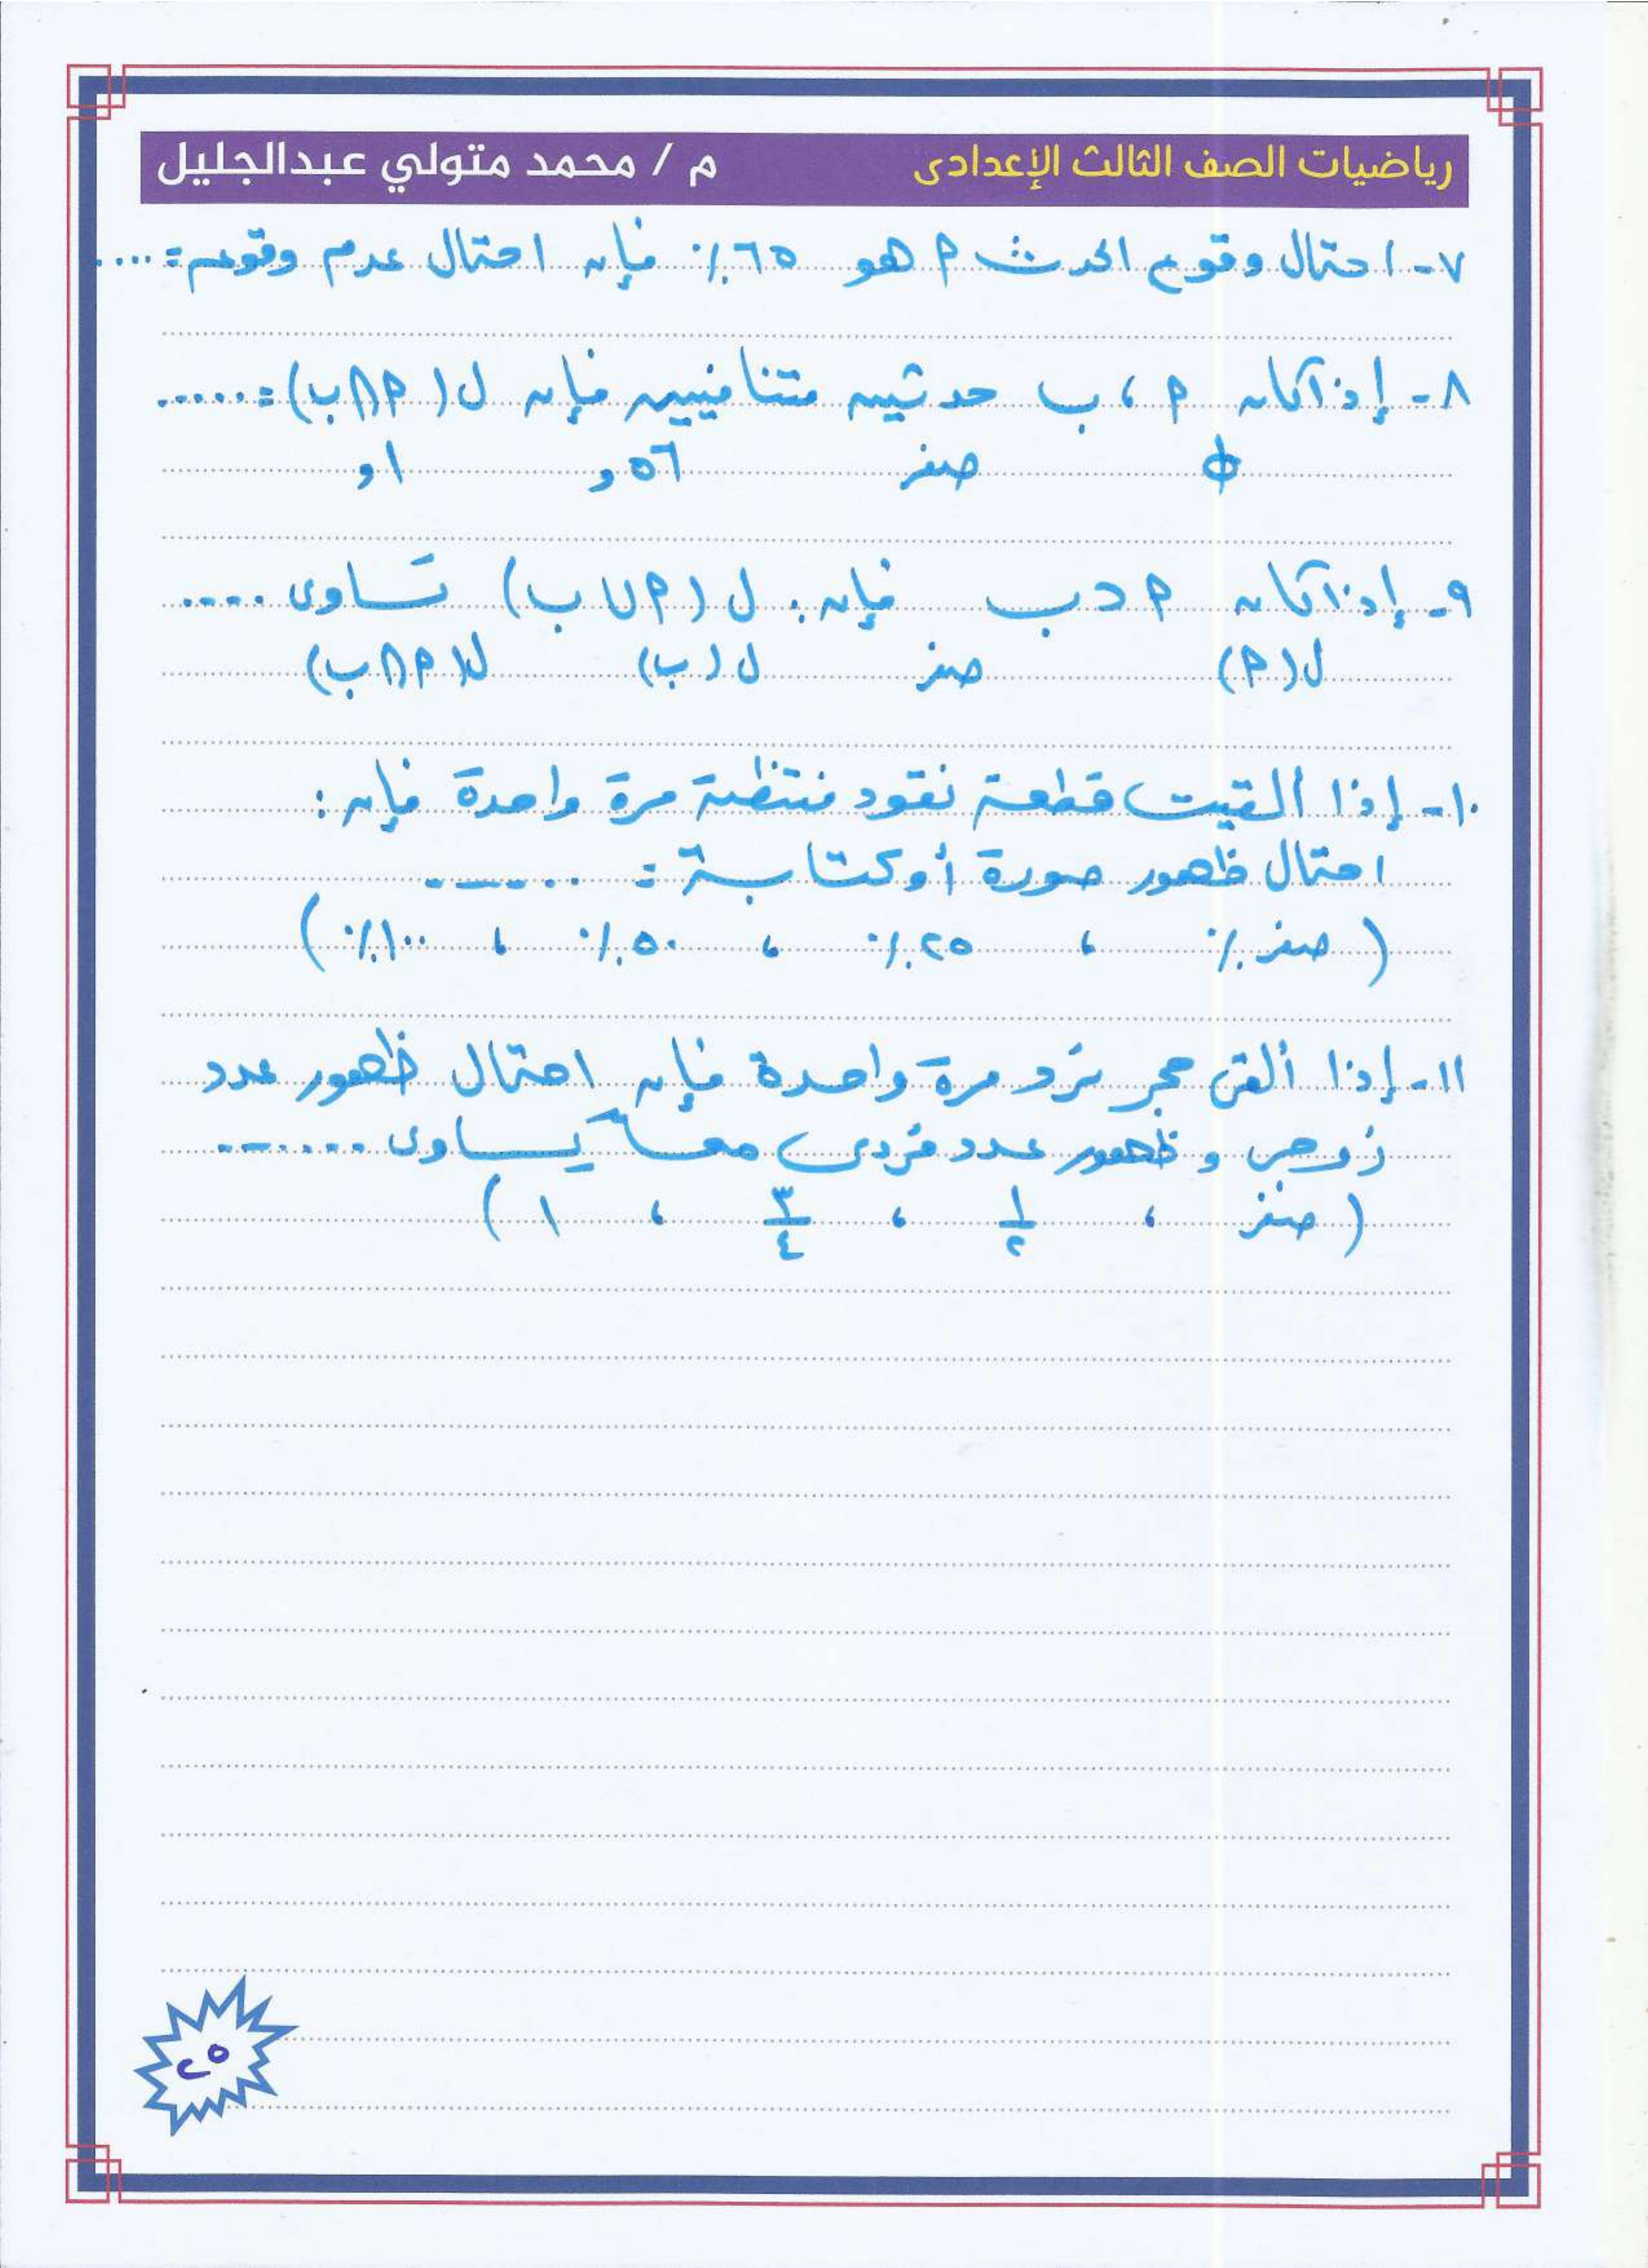 رياضيات الصف الثالث الإعدادى
م / محمد متولي عبدالجليل
٧- احتمال وقوع الحدث م هو ٦٥٪ فإن احتمال عدم وقوعه = ....
٨- إذا كان م ، ب حدثين متنافيين فإن ل (م ∩ ب) = .....
∅ صفر ٥٦و ١و
٩- إذا كان م ⊂ ب فإن : ل (م ∪ ب) تساوى ....
ل (م) صفر ل (ب) ل (م ∩ ب)
١٠- إذا ألقيت قطعة نقود منتظمة مرة واحدة فإن :
احتمال ظهور صورة أو كتابة = ......
( صفر ٪ ، ٢٥٪ ، ٥٠٪ ، ١٠٠٪ )
١١- إذا ألقى حجر نرد مرة واحدة فإن احتمال ظهور عدد
زوجى و ظهور عدد فردى معاً يساوى ......
( صفر ، ١/٢ ، ٣/٤ ، ١ )
٢٥